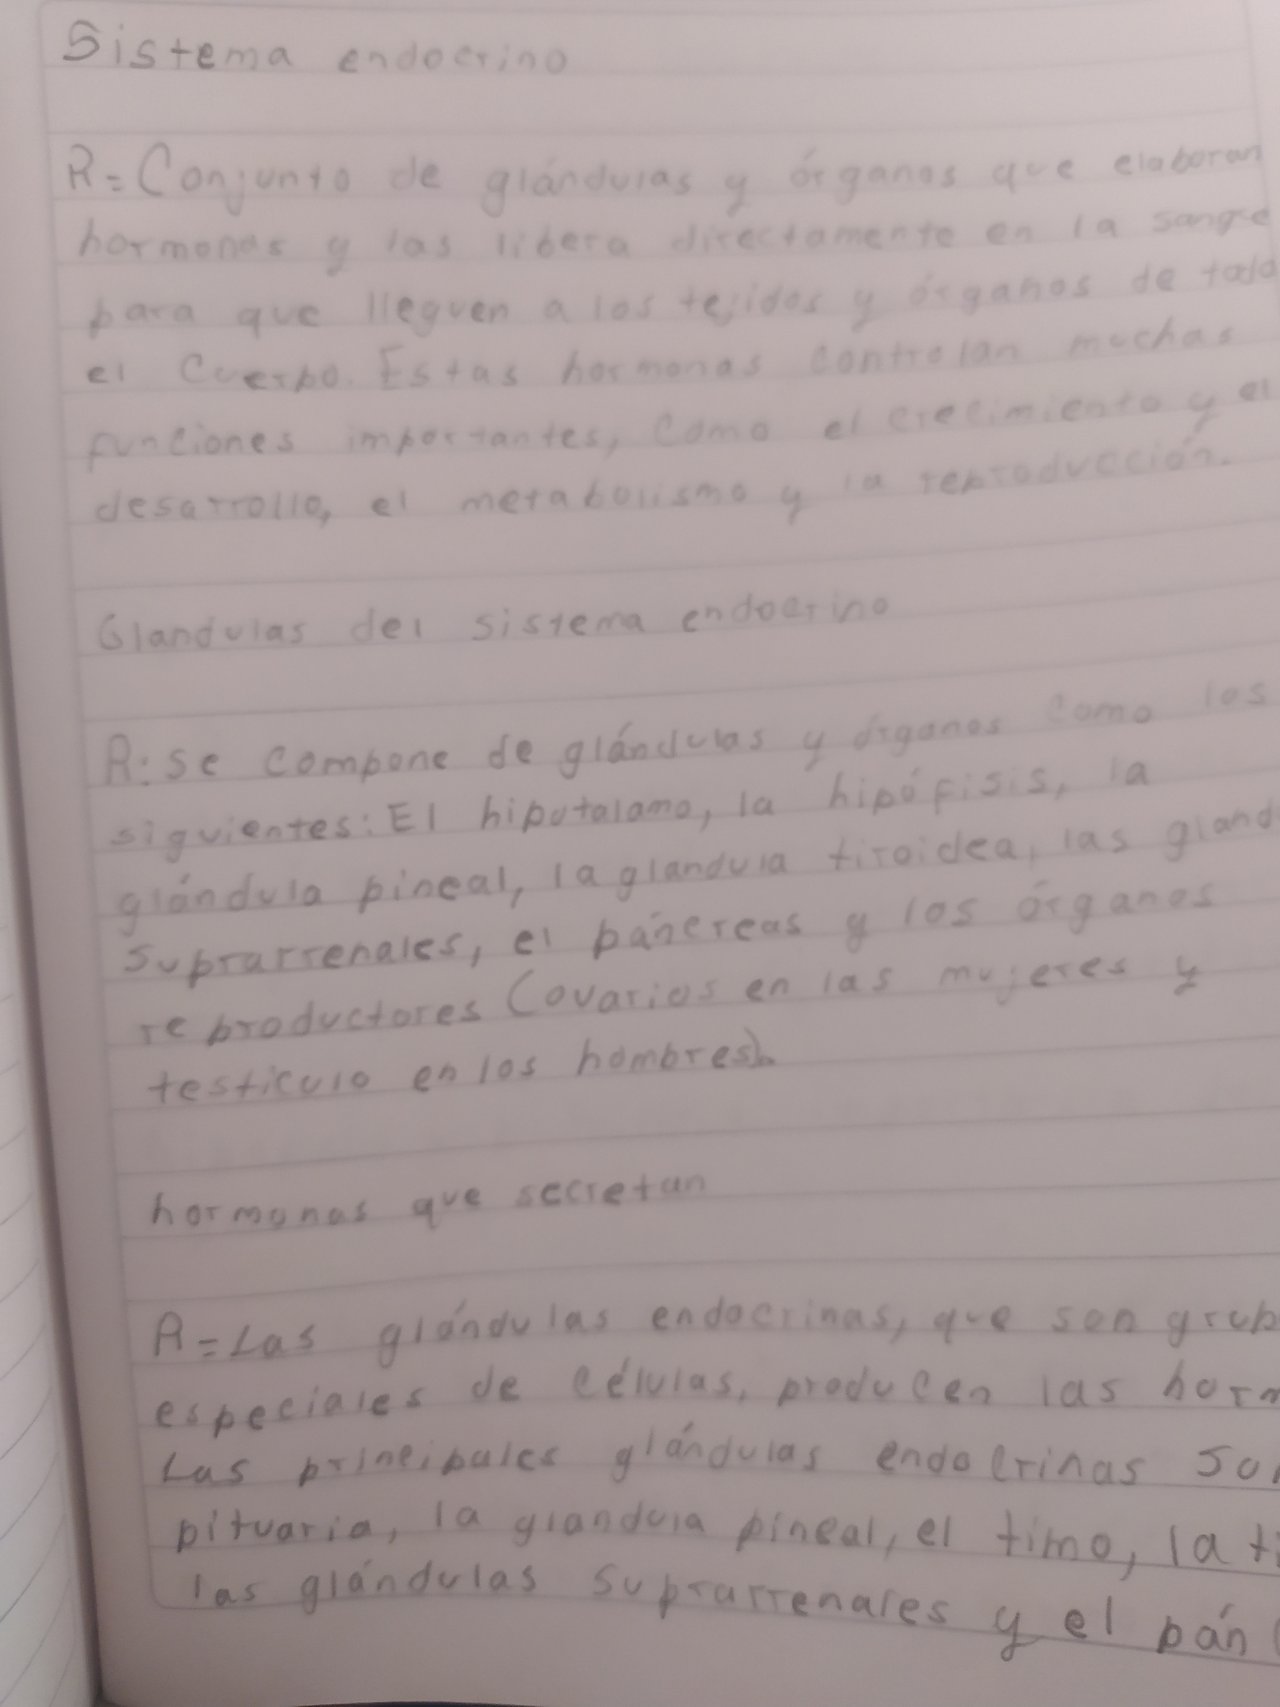 Sistema endocrino
R=Conjunto de glándulas y órganos que elaboran
hormonas y las libera directamente en la sangre
para que lleguen a los tejidos y órganos de todo
el Cuerpo. Estas hormonas controlan muchas
funciones importantes, como el crecimiento y el
desarrollo, el metabolismo y la reproducción.
Glandulas del sistema endocrino
R: se compone de glándulas y órganos como los
siguientes: El hipotalamo, la hipófisis, la
glándula pineal, la glandula tiroidea, las gland
suprarrenales, el páncreas y los órganos
reproductores (ovarios en las mujeres y
testiculo en los hombres).
hormonas que secretan
R=Las glándulas endocrinas, que son grup
especiales de células, producen las horm
Las principales glándulas endocrinas son
pituaria, la glandula pineal, el timo, la ti
las glándulas suprarrenales y el pán